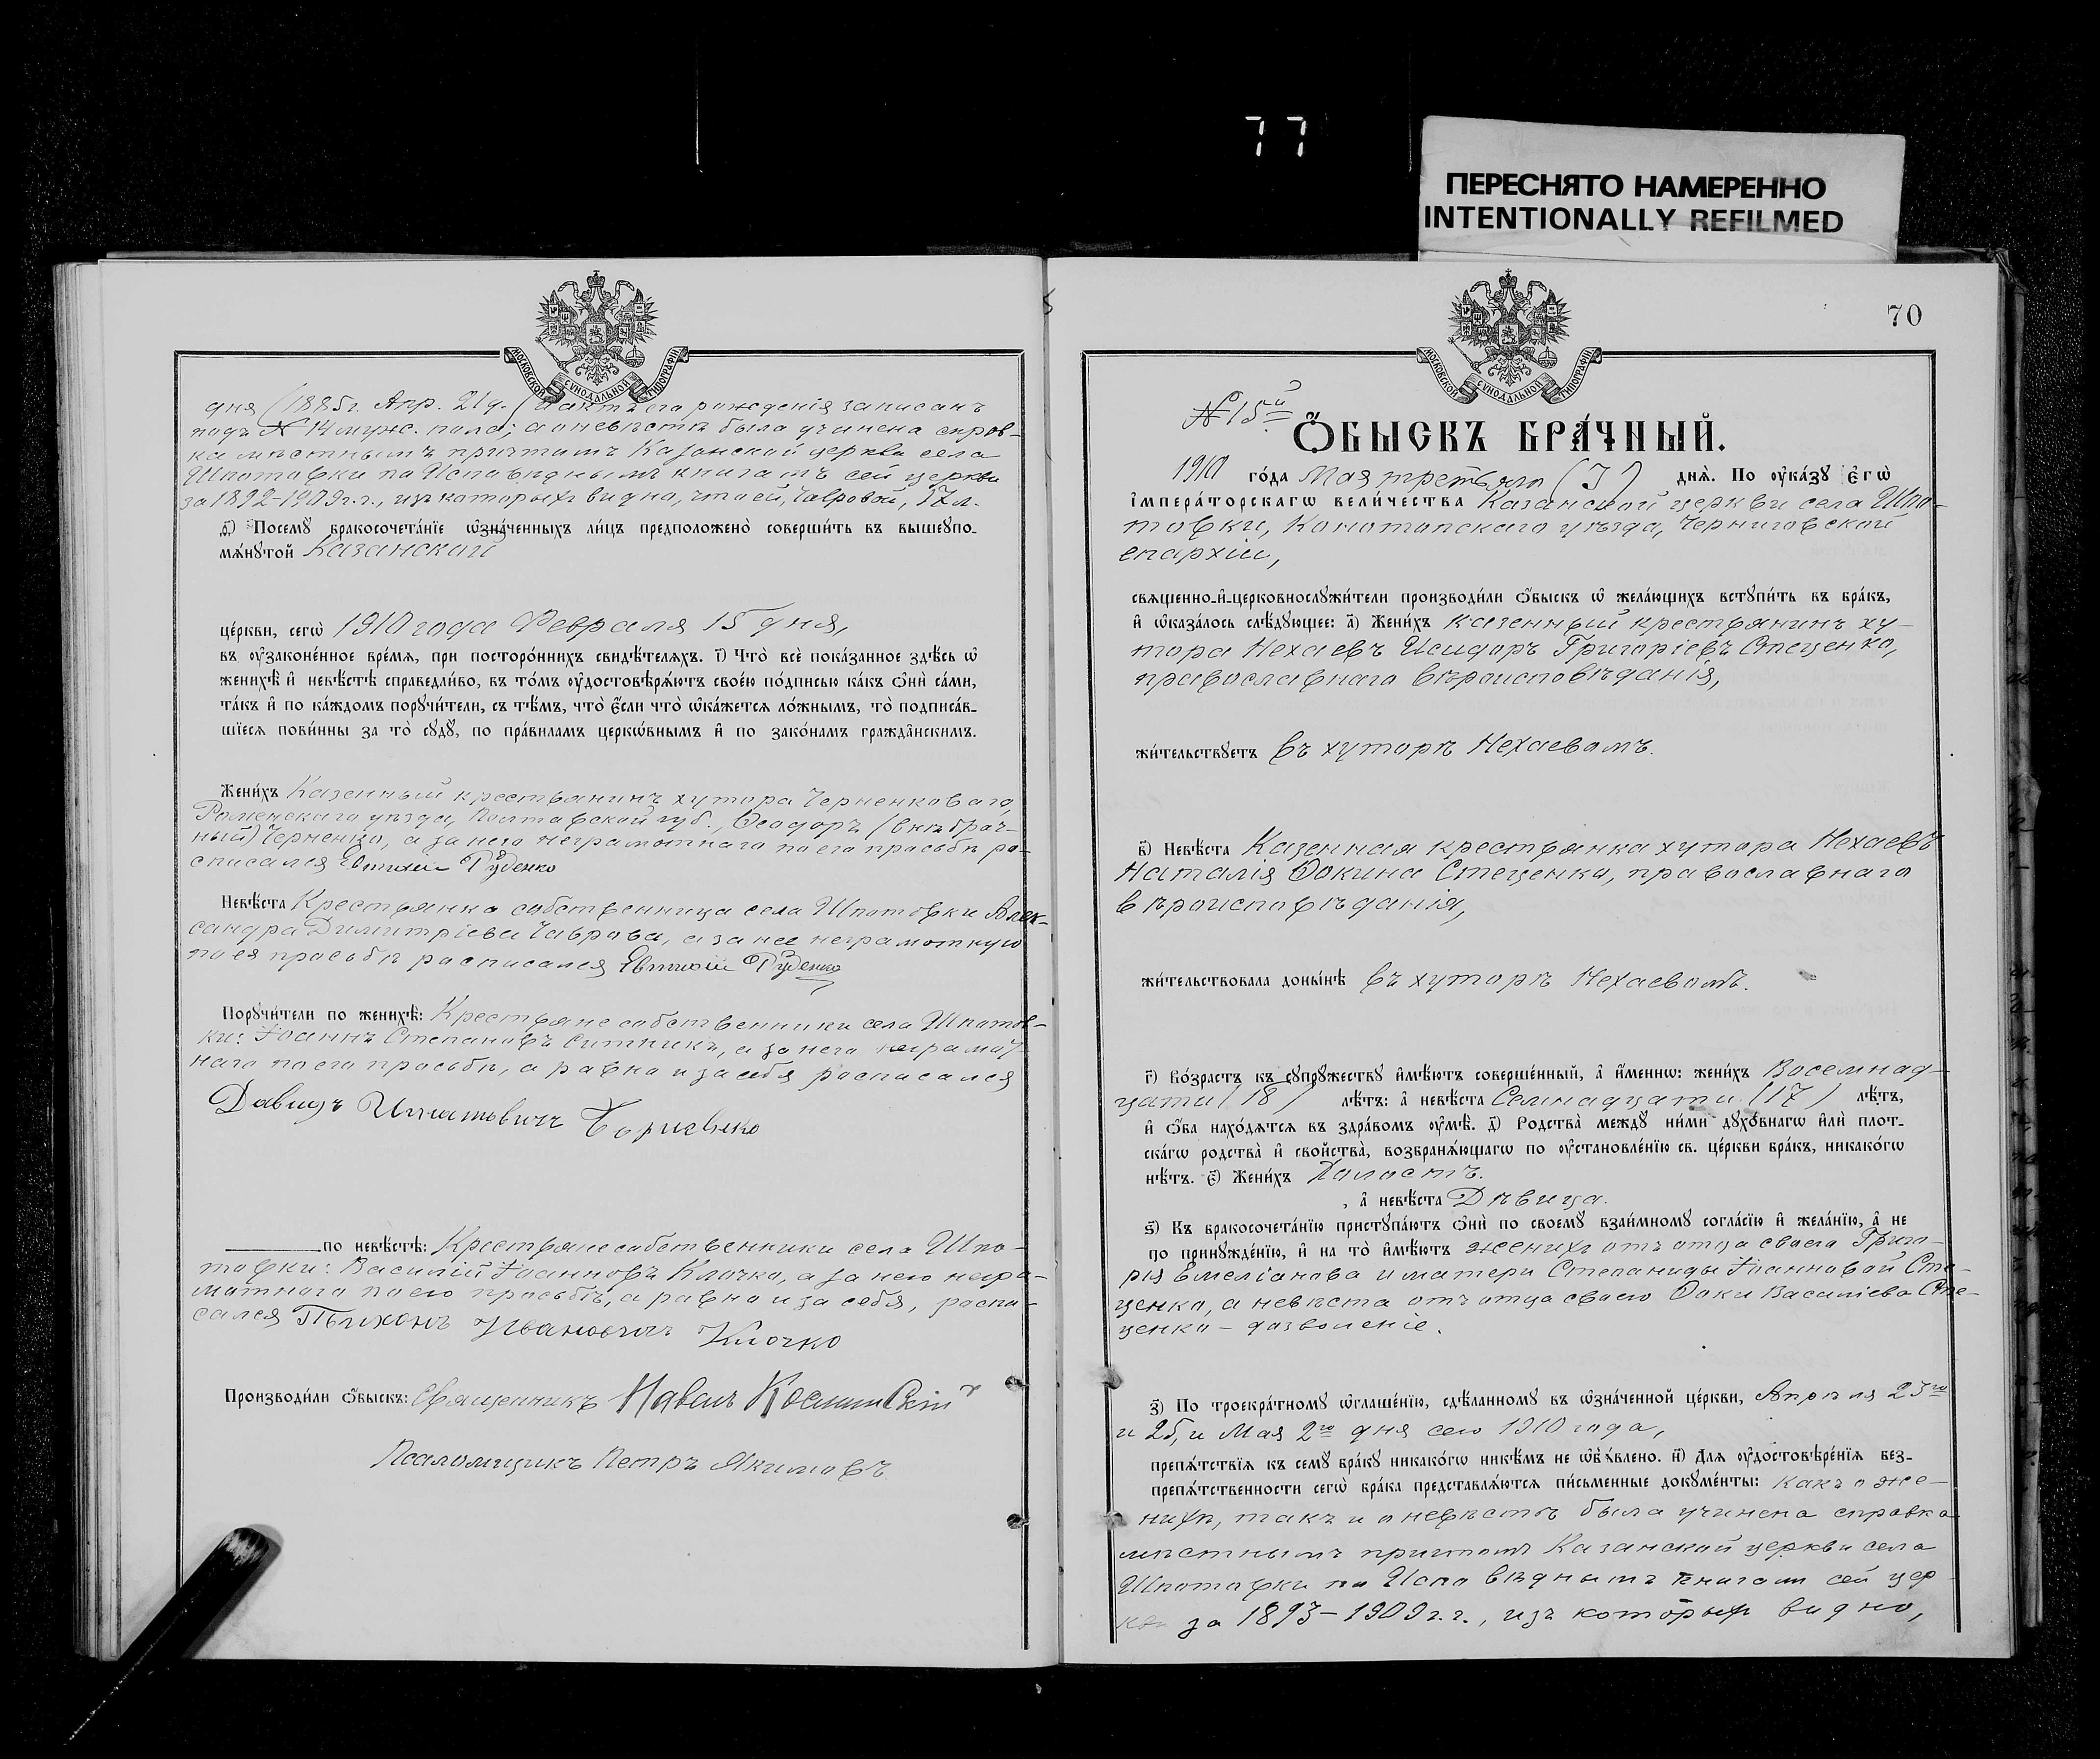 77
ПЕРЕСНЯТО НАМЕРЕННО
INTENTIONALLY REFILMED
МОСКОВСКОЙ СѴНОДАЛЬНОЙ ТИПОГРАФІИ
дня (1885г. Апр. 21д.) актъ его рожденія записанъ
подъ № 14 мужс. пола; а о невѣстѣ была учинена справ-
ка мѣстнымъ причтомъ Казанской церкви села
Шпотовки по Исповѣднымъ книгамъ сей церкви
за 1892-1909 г.г., изъ которыхъ видно, что ей, Чавровой, 17 л.
Посемꙋ бракосочета́нїе ѡ҆зна́ченныхъ ли́цъ предположено̀ соверши́ть въ вышеупо-
мѧ́нꙋтой Казанской
це́ркви, сегѡ̀ 1910 года Февраля 15 дня,
въ ᲂу҆зако́ненное вре́мѧ, при посторо́ннихъ свидѣ́телѧхъ. і҃) Что̀ всѐ пока́занное здѣ́сь ѡ҆
женихѣ̀ и҆ невѣ́стѣ справедли́во, въ то́мъ ᲂу҆достовѣрѧ́ютъ свое́ю по́дписью ка́къ ѻ҆нѝ са́ми,
та́къ и҆ по ка́ждомъ порꙋчи́тели, съ тѣ́мъ, что̀ є҆́сли что̀ ѡ҆ка́жетсѧ ло́жнымъ, то̀ подписа́в-
шїесѧ пови́нны за то̀ сꙋдꙋ̀, по пра́виламъ церко́внымъ и҆ по зако́намъ гражда́нскимъ.
Жени́хъ Казенный крестьянинъ хутора Черненковаго,
Роменскаго уѣзда, Полтавской губ., Ѳеодоръ (внѣбрач-
ный) Черненко, а за него неграмотнаго по его просьбѣ ра-
списался Евтихій Руденко
Невѣ́ста Крестьянка собственница села Шпотовки Алек-
сандра Димитріева Чаврова, а за нее неграмотную
по ея просьбѣ расписался Евтихій Руденко
Порꙋчи́тели по женихѣ̀: Крестьяне собственники села Шпотов-
ки: Іоаннъ Степановъ Ситникъ, а за него неграмот-
наго по его просьбѣ, а равно и за себя расписался
Давидъ Игнатовичъ
по невѣ́стѣ: Крестьяне собственники села Шпо-
товки: Василій Іоанновъ Клочко, а за него негра-
мотнаго по его просьбѣ, а равно и за себя, распи-
сался Тихонъ Ивановичъ Клочко
Производи́ли ѻ҆́быскъ: Священникъ Павелъ
Псаломщикъ Петръ Якимовъ
70
МОСКОВСКОЙ СѴНОДАЛЬНОЙ ТИПОГРАФІИ
№ 15й
Ѻ҆́БЫСКЪ БРА́ЧНЫЙ.
1910 го́да Мая третьяго (3) днѧ̀. По ᲂу҆ка́зꙋ є҆гѡ̀
і҆мпера́торскагѡ вели́чества Казанской церкви села Шпо-
товки, Конотопскаго уѣзда, Черниговской
епархіи,
свѧщенно-и҆-церковнослꙋжи́тели производи́ли ѻ҆́быскъ ѡ҆ жела́ющихъ встꙋпи́ть въ бра́къ,
и҆ ѡ҆каза́лось слѣ́дꙋющее: а҃) Жени́хъ казенный крестьянинъ ху-
тора Нехаевъ Исидоръ Григоріевъ Стеценко,
православнаго вѣроисповѣданія,
жи́тельствꙋетъ въ хуторѣ Нехаевомъ.
в҃) Невѣ́ста Казенная крестьянка хутора Нехаевъ
Наталія Ѳокина Стеценко, православнаго
вѣроисповѣданія,
жи́тельствовала доны́нѣ въ хуторѣ Нехаевомъ.
г҃) Во́зрастъ къ сꙋпрꙋ́жествꙋ и҆мѣ́ютъ соверше́нный, а҆ и҆́меннѡ: жени́хъ Восемнад-
цати (18) лѣ́тъ: а҆ невѣ́ста Семнадцати (17) лѣ́тъ,
и҆ ѻ҆́ба нахо́дѧтсѧ въ здра́вомъ ᲂу҆мѣ̀. д҃) Родства̀ междꙋ̀ ни́ми дꙋхо́внагѡ и҆лѝ плот-
ска́гѡ родства̀ и҆ сво́йства̀, возбранѧ́ющагѡ по ᲂу҆становле́нїю св. це́ркви бра́къ, никако́гѡ
нѣ́тъ. є҃) Жени́хъ Холостъ.
, а҆ невѣ́ста Дѣвица.
ѕ҃) Къ бракосочета́нїю пристꙋпа́ютъ ѻ҆нѝ по своемꙋ̀ взаи́мномꙋ согла́сїю и҆ жела́нїю, а҆ не
по принꙋжде́нїю, и҆ на то̀ и҆мѣ́ютъ женихъ отъ отца своего Григо-
рія Емеліанова и матери Степаниды Іоанновой Сте-
ценко, а невѣста отъ отца своего Ѳоки Василіева Сте-
ценко — дозволеніе.
з҃) По троекра́тномꙋ ѡ҆глаше́нїю, сдѣ́ланномꙋ въ ѡ҆зна́ченной це́ркви, Апрѣля 23го
и 25, и Мая 2го дня сего 1910 года,
препѧ́тствїѧ къ семꙋ̀ бра́кꙋ никако́гѡ никѣ́мъ не ѡ҆б̾ѧ́влено. и҃) Длѧ ᲂу҆достовѣре́нїѧ без-
препѧ́тственности сегѡ̀ бра́ка представлѧ́ютсѧ пи́сьменные докꙋме́нты: какъ о же-
нихѣ, такъ и о невѣстѣ была учинена справка
мѣстнымъ причтомъ Казанской церкви села
Шпотовки по Исповѣднымъ книгам сей цер-
кви за 1893-1909 г.г., изъ которых видно,